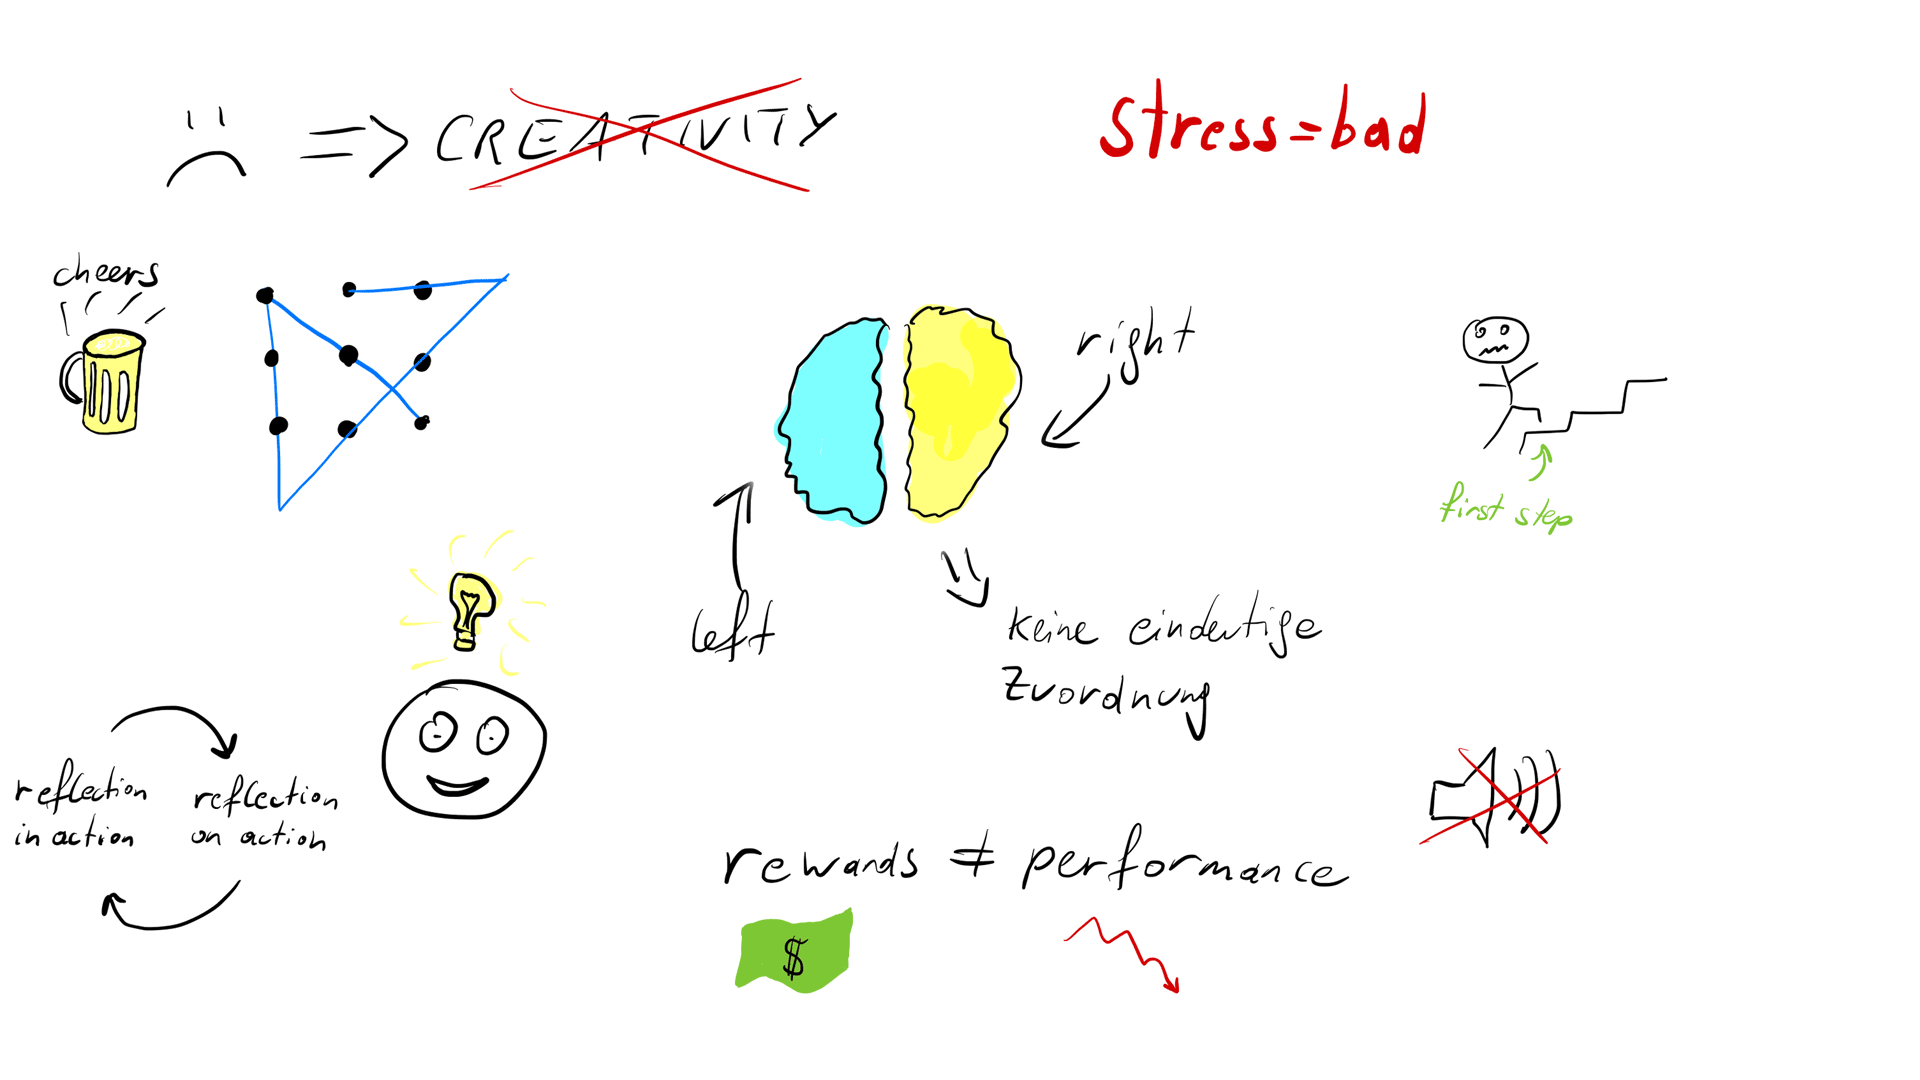 => CREATIVITY
stress=bad
cheers
right
first step
left
keine eindeutige
Zuordnung
reflection
in action
reflection
on action
rewards ≠ performance
$